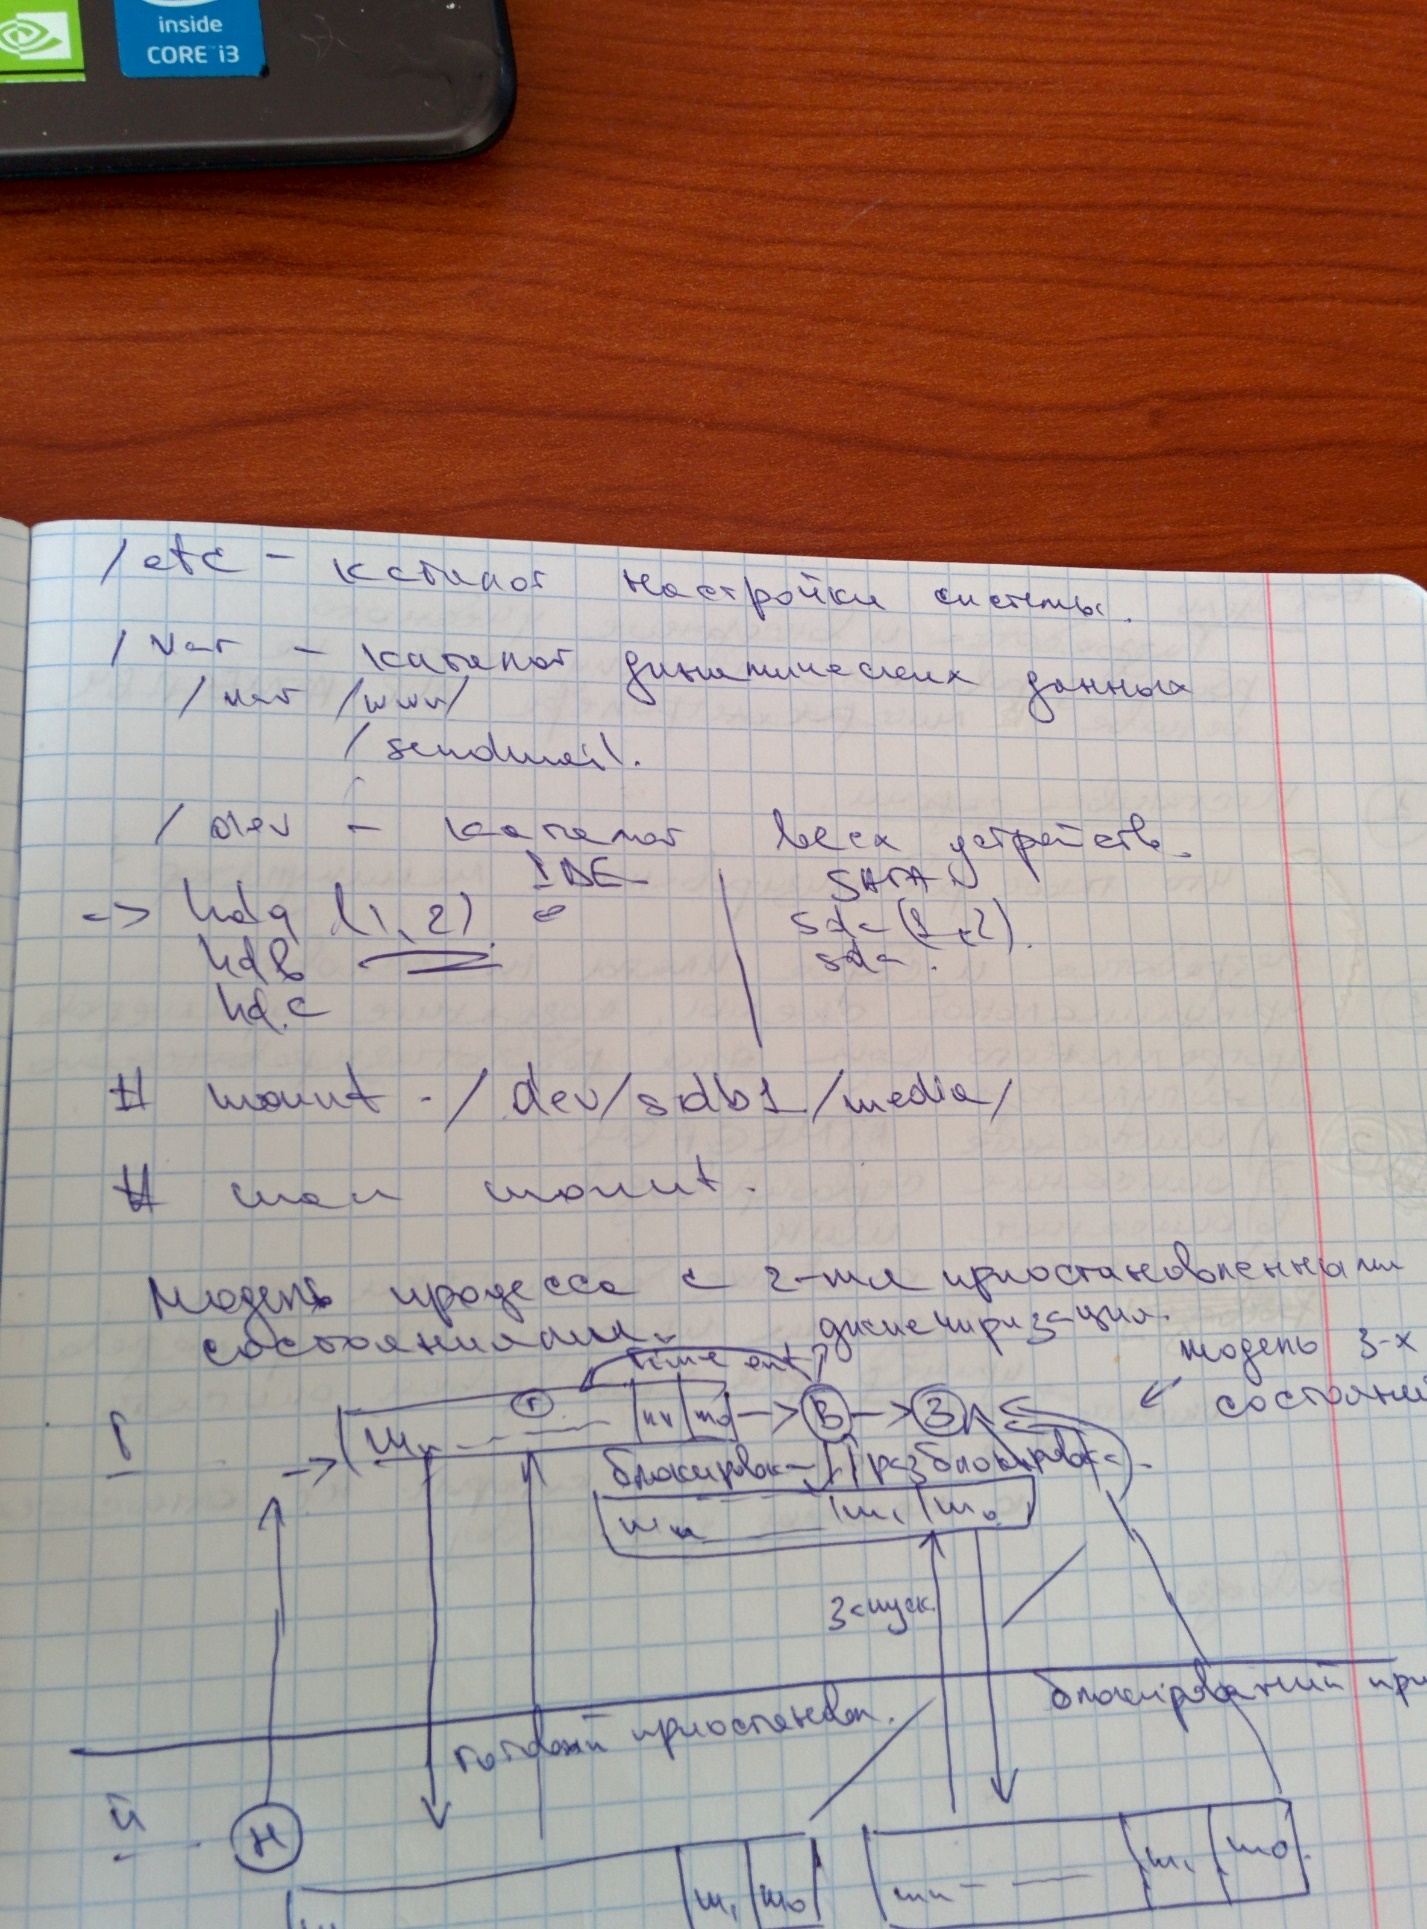 inside
CORE i3
/etc - каталог настройки системы.
/var - каталог динамических данных
/var /www/
/sendmail.
/dev - каталог всех устройств.
IDE SATA
-> hda (1, 2) sda (1, 2).
hdb sda.
hd.c
# mount /dev/sdb1 /media/
# man mount.
Модель процесса с 2-мя приостановленными
состояниями. диспетчиризация.
time out
модель 3-х
состояний
Г
m1 m0 -> В -> З
блокировка разблокировка
mn m1 m0
запуск
готовый приостановл. блокирований при
Н
m1 m0
mn m1 m0